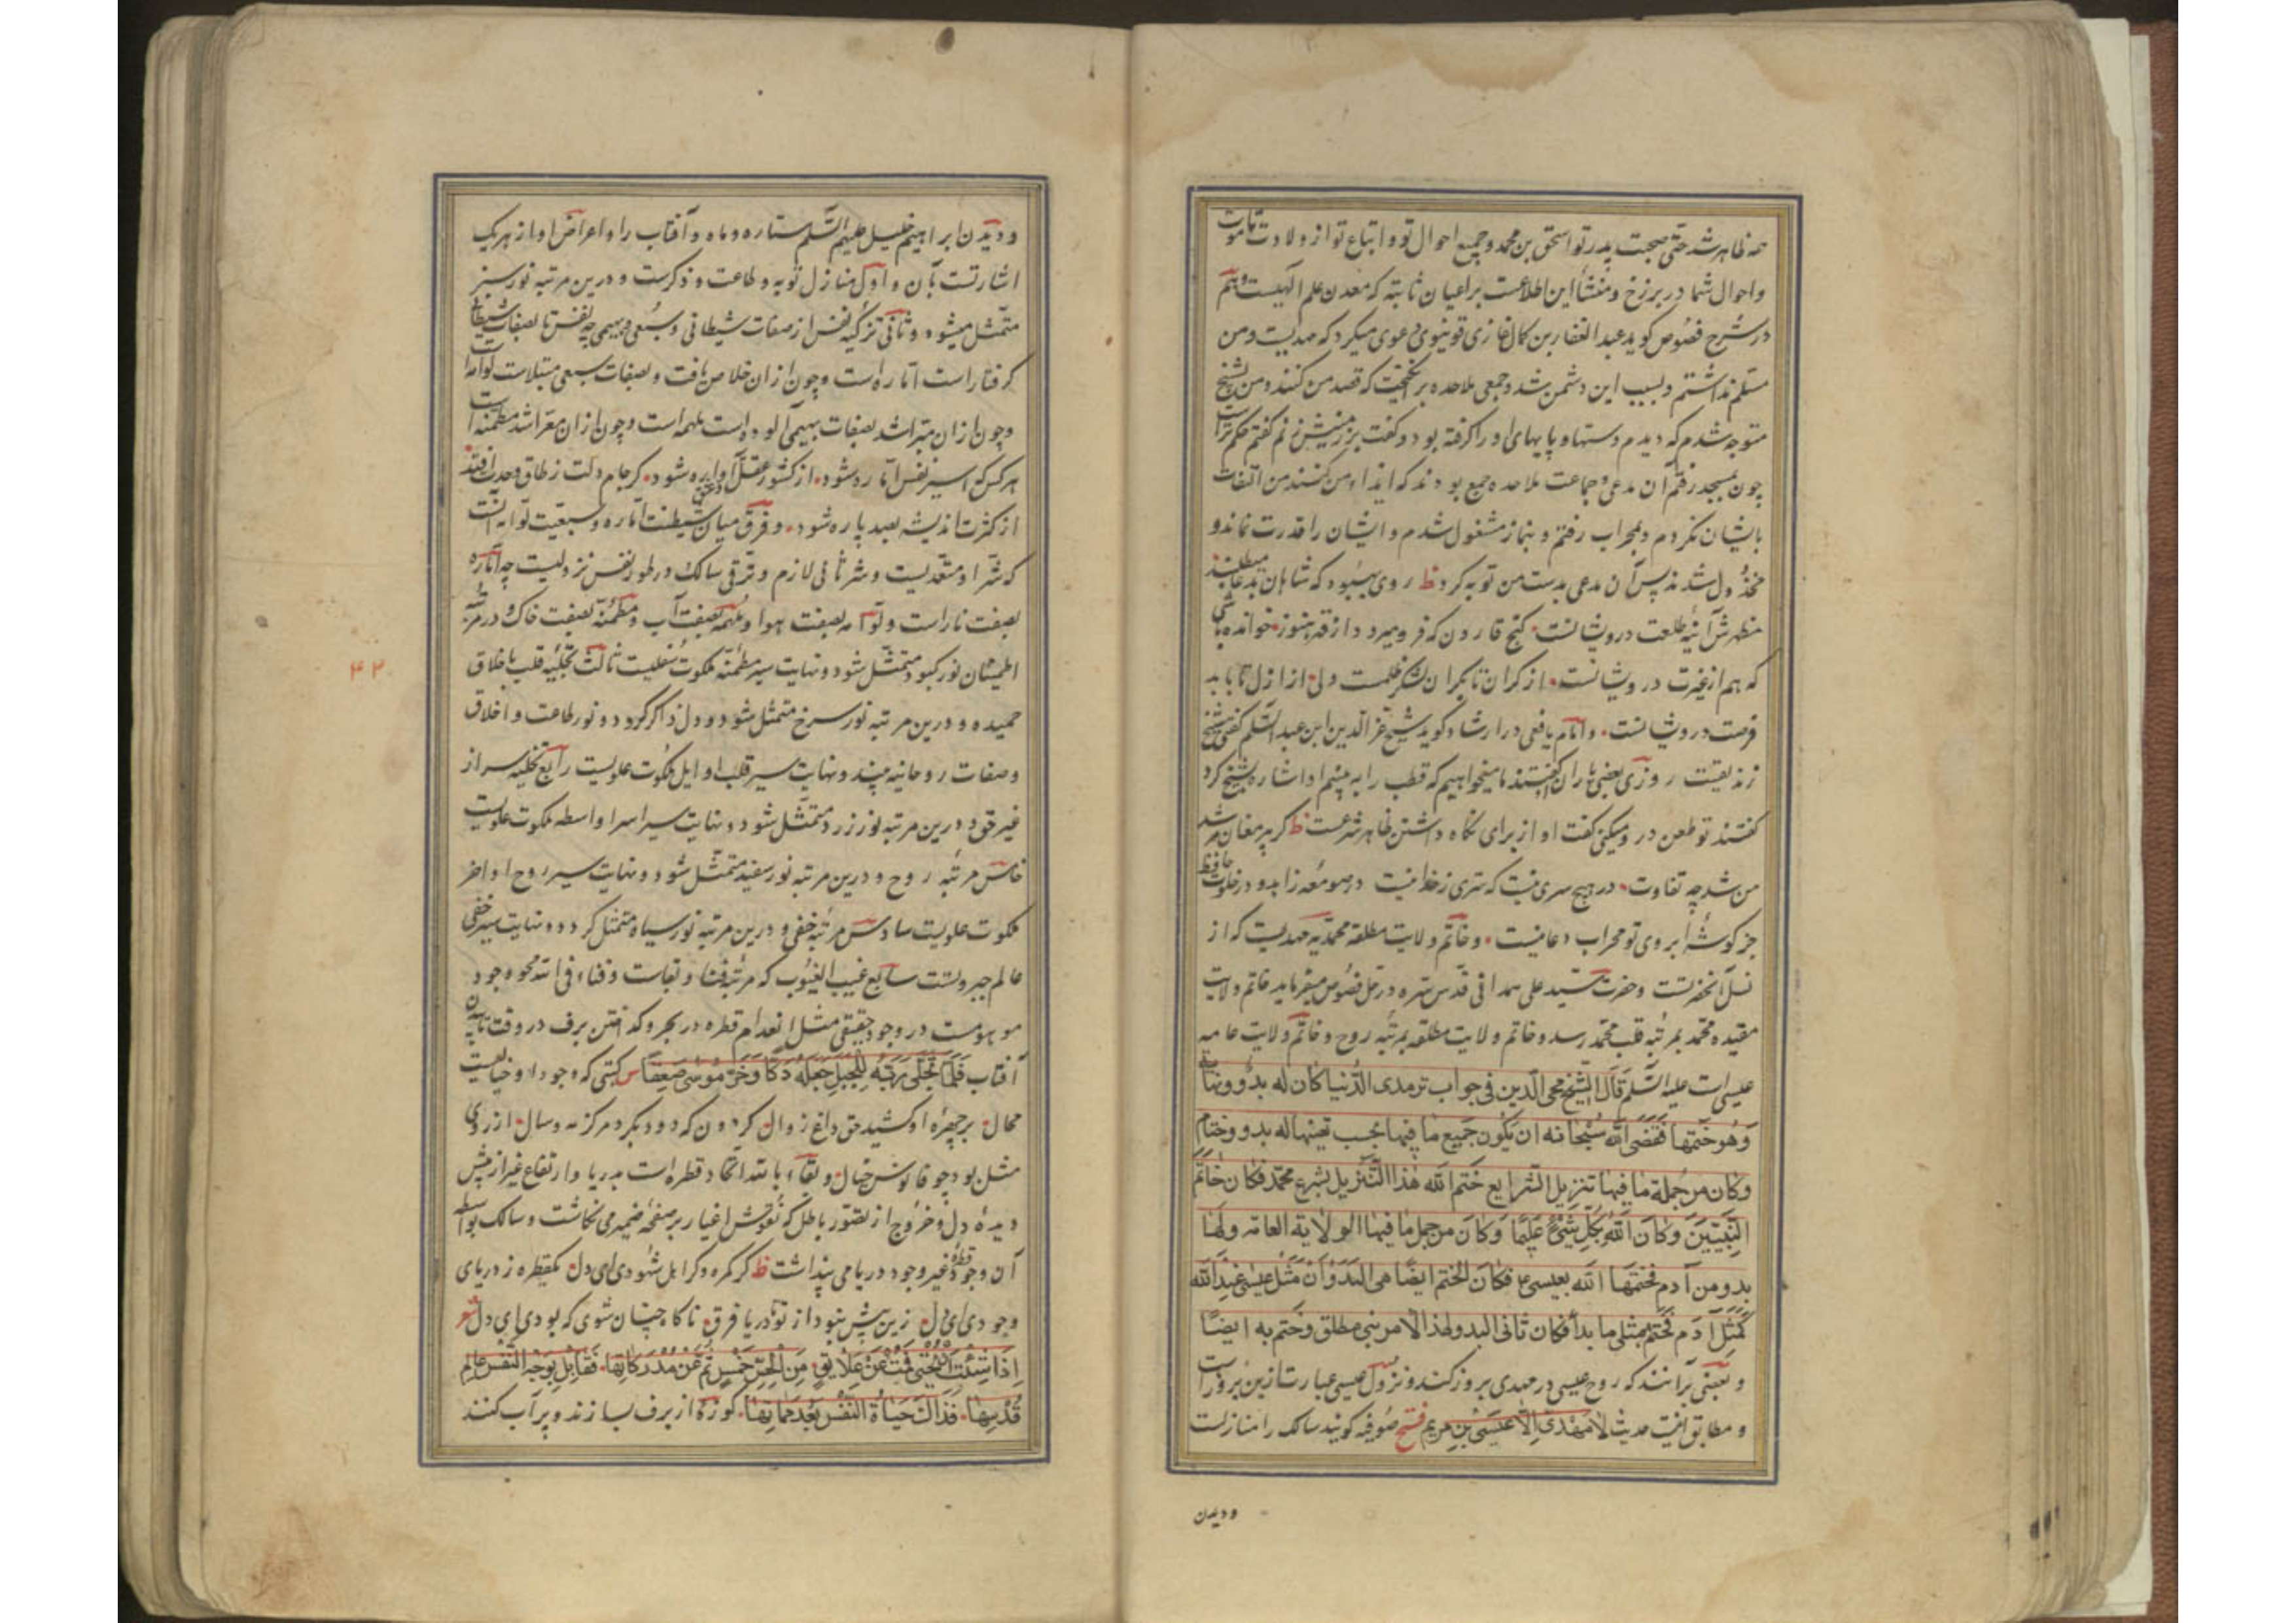 همه ظاهر شد حتی صحبت پدر تو اسحق بن محمد و جمیع احوال تو و اتباع تو از ولادت تا موت
و احوال شما در برزخ و منشأ این اطلاعست بر اعیان ثابته که معدن علم الهیست و هم
در شرح فصوص کوید عبد الغفار بن کمال غازی قونیوی دعوی میکرد که مهدیست و من
مسلم نداشتم و بسبب این دشمن شد و جمعی ملاحده برانکیخت که قصد من کنند و من بشیخ
متوجه شدم که دیدم دستها و پایهای او را کرفته بود و کفت بر زمینش زنم کفتم حکم تراست
چون بمسجد رفتم آن مدعی و جماعت ملاحده جمع بودند که ایذاء من کنند من التفات
بایشان نکردم و بمحراب رفتم و بنماز مشغول شدم و ایشان را قدرت نماند و
مخذول شدند پس آن مدعی بدست من توبه کرد ظ روی مقصود که شاهان بدعا میطلبند
مظهرش آینه طلعت درویشانست کنج قارون که فرو میرود از قهر هنوز خوانده باشی
که هم از غیرت درویشانست از کران تا بکران لشکر ظلمت ولی از ازل تا بابد
فرصت درویشانست و امام یافعی در ارشاد کوید شیخ عز الدین ابن عبد السلم کفتی شیخ
زندیقیست روزی بعضی یاران کفتند ما میخواهیم که قطب را به بینیم او اشاره بشیخ کرد
کفتند تو طعن در و میکنی کفت او از برای نکاه داشتن ظاهر شرعست ظ کر پیر مغان مرشد
من شد چه تفاوت در هیچ سری نیست که سری ز خدا نیست در صومعه زاهد و در خلوت حافظ
جز کوشه ابروی تو محراب دعا نیست و خاتم ولایت مطلقه محمدیه مهدیست که از
نسل آنحضرتست و حضرت سید علی همدانی قدس سره در حل فصوص میفرماید خاتم ولایت
مقیده محمد بمرتبه قلب محمد رسد و خاتم ولایت مطلقه بمرتبه روح و خاتم ولایت عامه
عیسی است علیه السلم قال الشیخ محی الدین فی جواب ترمدی الدنیا کان له بدو و نهایة
وَهُوَ خَتمها فقضی الله سبحانه ان یکون جمیع ما فیها بحسب نعتها له بدو و ختام
وکان من جملة ما فیها تنزیل الشرایع ختم الله هذا التنزیل بشرع محمد فکان خاتم
النبیین وکان الله بکل شیء علیما وکان من جمل ما فیها الولایة العامه ولها
بدو من آدم فختمها الله بعیسی ع فکان الختم ایضا هی البدو ان مثل عیسی عند الله
کمثل آدم فختم بمثلی ما بدأ فکان ثانی البدو لهذا الامر بنبی مطلق وختم به ایضا
و بعضی برآنند که روح عیسی در مهدی بروز کند و نزول عیسی عبارتست ازین بروز است
و مطابق اینست حدیث لا مهدی الا عیسی بن مریم فتح صوفیه کویند سالک را منازلست
و دیدن
و دیدن ابراهیم خلیل علیه السلم ستاره و ماه و آفتاب را و اعراض او از هر یک
اشارتست بآن و اول منازل توبه و طاعت و ذکرست و درین مرتبه نور سبز
متمثل میشود و ثانی تزکیه نفس از صفات شیطانی و سبعی و بهیمی چه نفس تا بصفات شیطانی
کرفتار است اماره است و چون ازان خلاص یافت و بصفات سبعی مبتلاست لوامه است
و چون ازان مبرا شد بصفات بهیمی آلوده است ملهمه است و چون ازان معرا شد مطمئنه است
هر کس که اسیر نفس اماره شود از کشور عقل آواره شود کر جام دلت ز طاق وحدت افتد
از کثرت اندیشه بصد پاره شود و فرق میان شیطنت اماره و سبعیت لوامه آنست
که شر او متعدیست و شر ثانی لازم و ترقی سالک در طور نفس نزولیست چه اماره
بصفت نار است و لوامه بصفت هوا و ملهمه بصفت آب و مطمئنه بصفت خاک و در مرتبه
اطمینان نور کبود متمثل شود و نهایت سیر مطمئنه ملکوت سفلیست ثالث تحلیه قلب باخلاق
حمیده و درین مرتبه نور سرخ متمثل شود و دل ذاکر کردد و نور طاعت و اخلاق
و صفات روحانیه بیند و نهایت سیر قلب اوایل ملکوت علویست رابع تخلیه سر از
غیر حق و درین مرتبه نور زرد متمثل شود و نهایت سیر اسرار اواسط ملکوت علویست
خامس مرتبه روح و درین مرتبه نور سفید متمثل شود و نهایت سیر روح اواخر
ملکوت علویست سادس مرتبه خفی و درین مرتبه نور سیاه متمثل کردد و نهایت سیر خفی
عالم جبروتست سابع غیب الغیوب که مرتبه فنا و بقاست و فناء فی الله محو وجود
موهومست در وجود حقیقی مثل انعدام قطره در بحر و کداختن برف در وقت تابیدن
آفتاب فلما تجلی ربه للجبل جعله دکا وخر موسی صعقا س کسی که وجود او خیالیست
محال بر چهره او کشید حق داغ زوال کردون که دود بکرد مرکز مه و سال از روی
مثل بود چو فانوس خیال و بقاء بالله اتحاد قطره است بدریا و ارتفاع غیر از پیش
دیده دل و خروج از تصور باطل که نقوش اغیار بر صفحه ضمیر می نکاشت و سالک بواسطه
آن وجود قطره غیر وجود دریا می پنداشت ظ کر کمره و کر اهل شهودی ای دل یکقطره ز دریای
وجودی ای دل زین پیش نبود از تو تا دریا فرق ناکاه چنان شوی که بودی ای دل شعر
اذا شئت ان تحیی فمت عن علایق من الحس خمس ثم عن مدرکاتها فقابل بوجه النفس عالم
قدسها فذاک حیاة النفس بعد مماتها کوزه از برف بسازند و پر آب کنند
۴۲۰